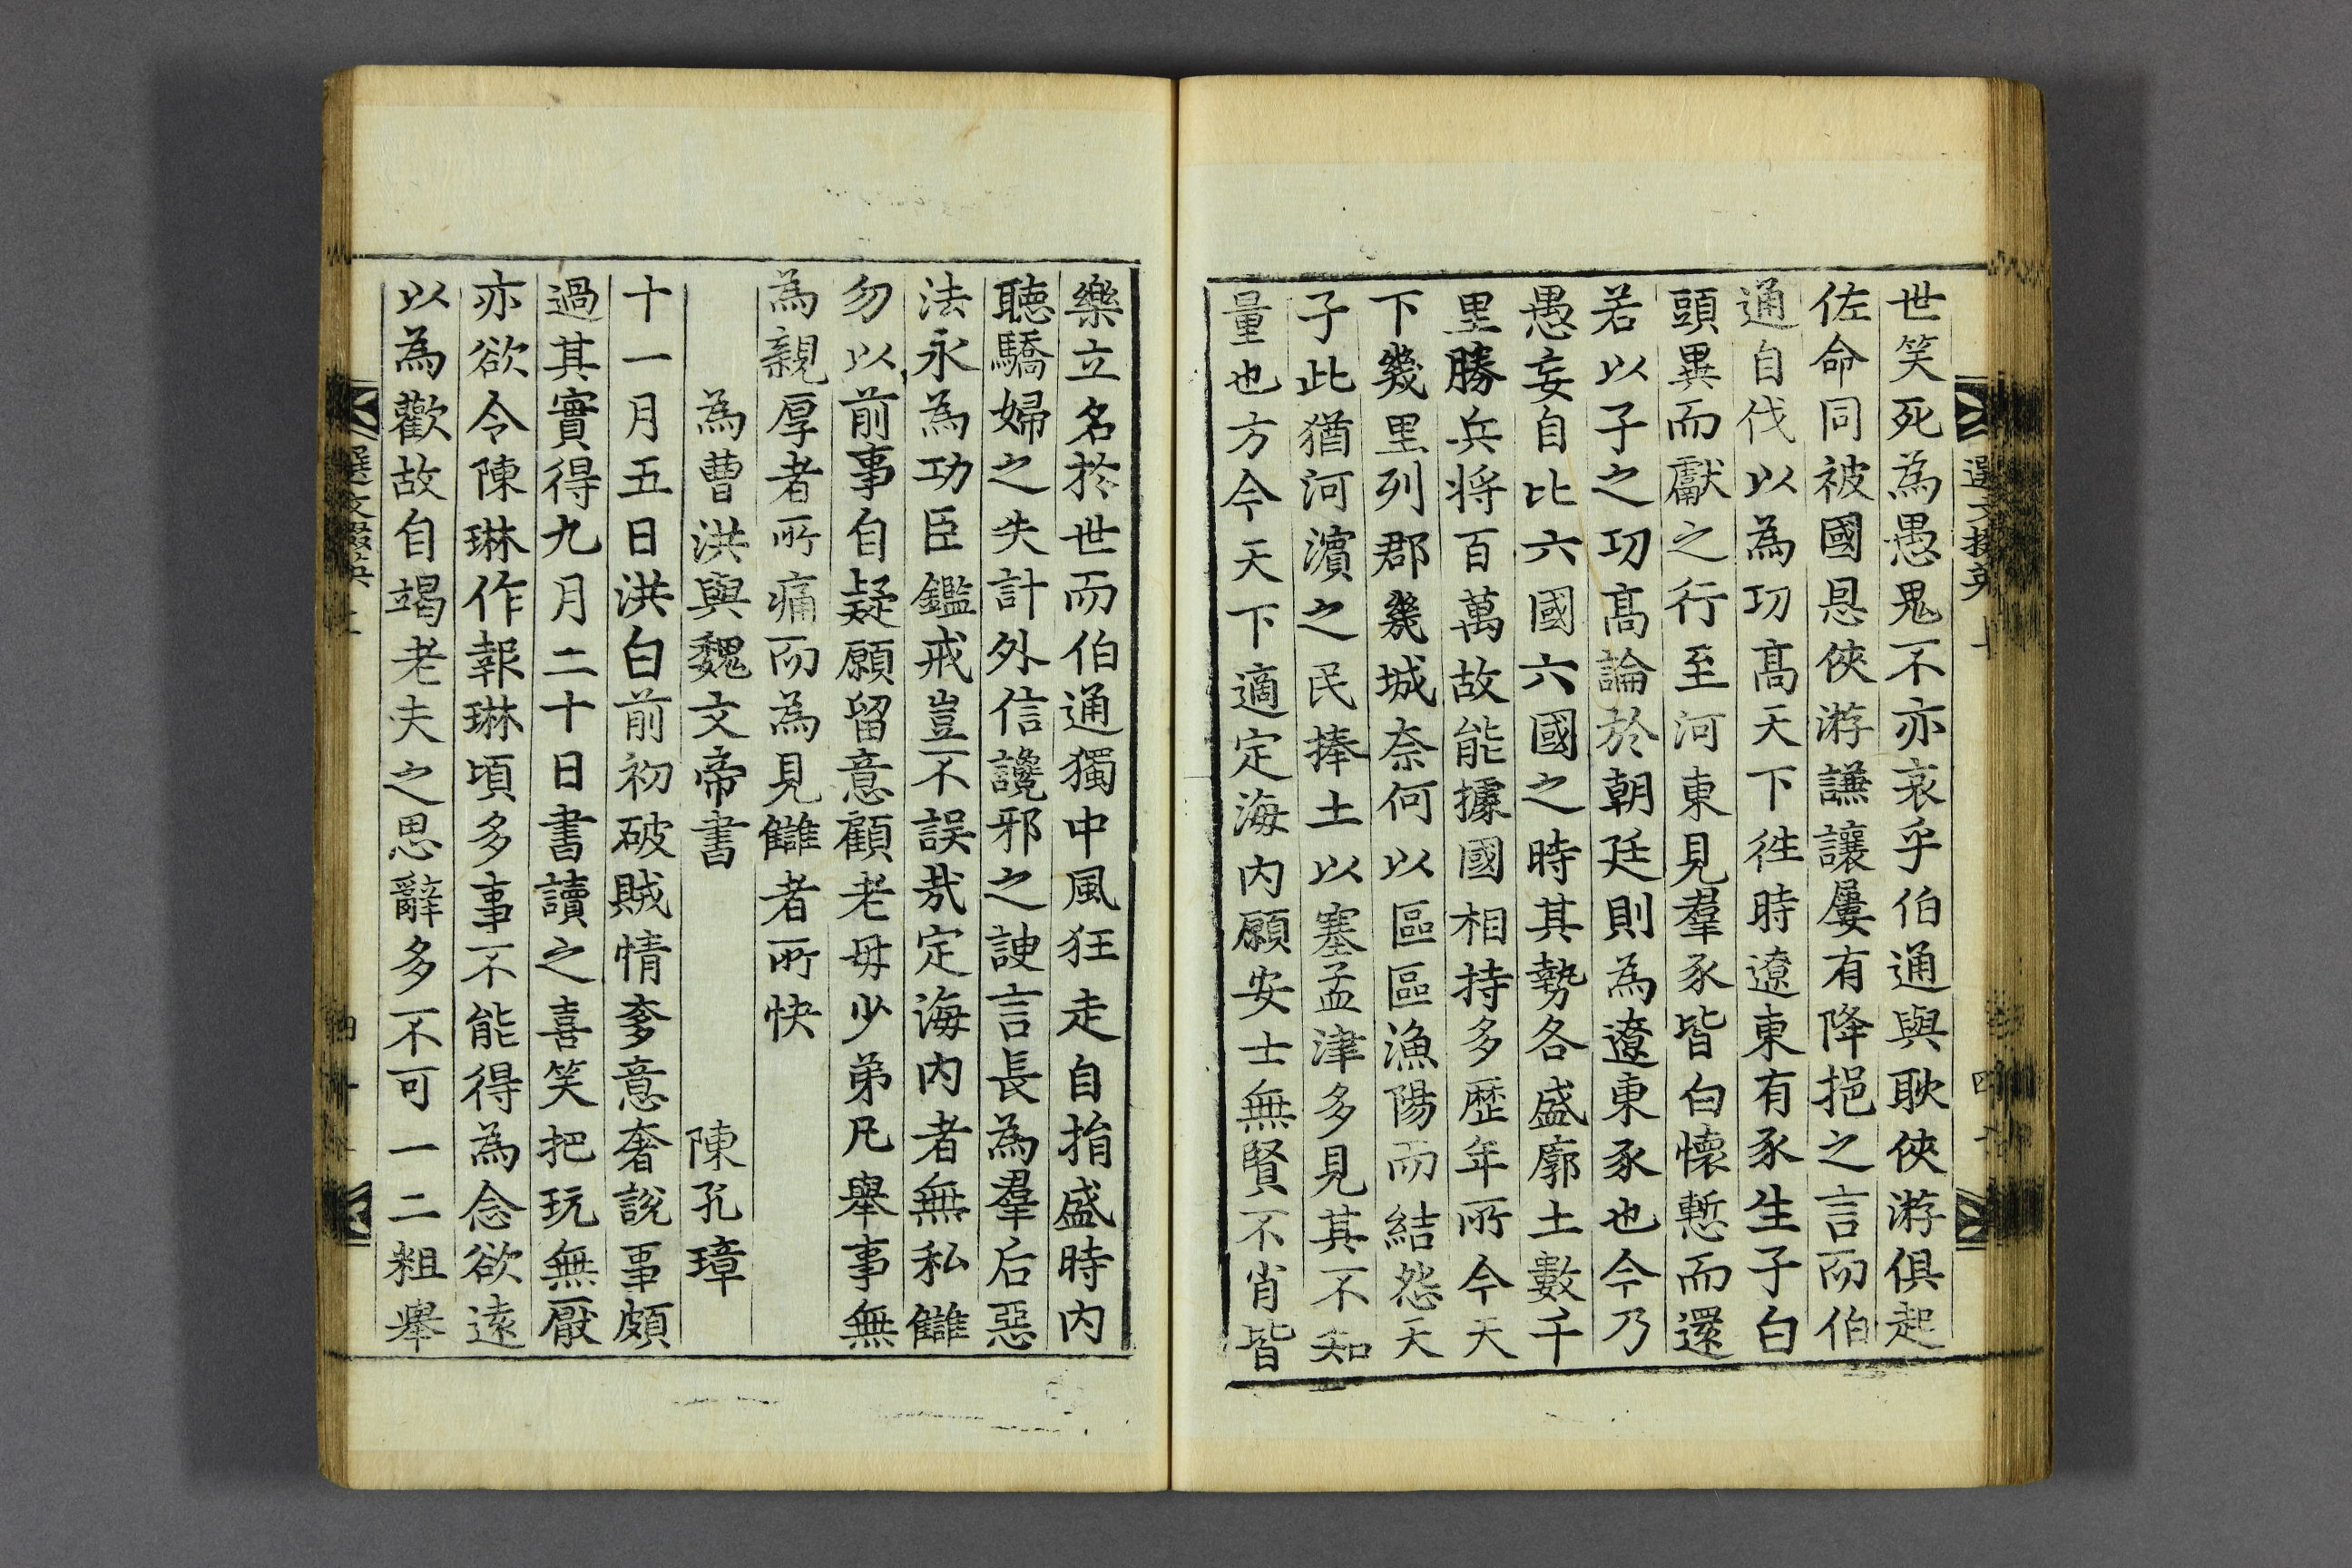 世笑死為愚鬼不亦哀乎伯通與耿俠游俱起
佐命同被國恩俠游謙讓屢有降挹之言而伯
通自伐以為功高天下徃時遼東有豕生子白
頭異而獻之行至河東見羣豕皆白懷慙而還
若以子之功高論於朝廷則為遼東豕也今乃
愚妄自比六國六國之時其勢各盛廓土數千
里勝兵将百萬故能據國相持多歷年所今天
下幾里列郡幾城奈何以區區漁陽而結怨天
子此猶河濵之民捧土以塞孟津多見其不知
量也方今天下適定海内願安士無賢不肖皆
樂立名於世而伯通獨中風狂走自捐盛時内
聽驕婦之失計外信讒邪之諛言長為羣后惡
法永為功臣鑑戒豈不誤㢤定海内者無私讎
勿以前事自疑願留意顧老母少弟凡舉事無
為親厚者所痛而為見讎者所快
為曹洪與魏文帝書 陳孔璋
十一月五日洪白前初破賊情奓意奢說事頗
過其實得九月二十日書讀之喜笑把玩無厭
亦欲令陳琳作報琳頃多事不能得為念欲遠
以為歡故自竭老夫之思辭多不可一二粗舉